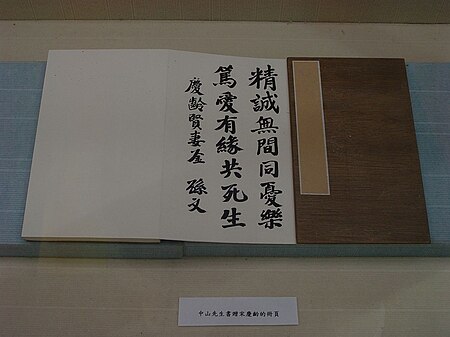 精誠無間同憂樂
篤愛有緣共死生
慶齡賢妻鉴 孫文
中山先生書贈宋慶齡的術頁